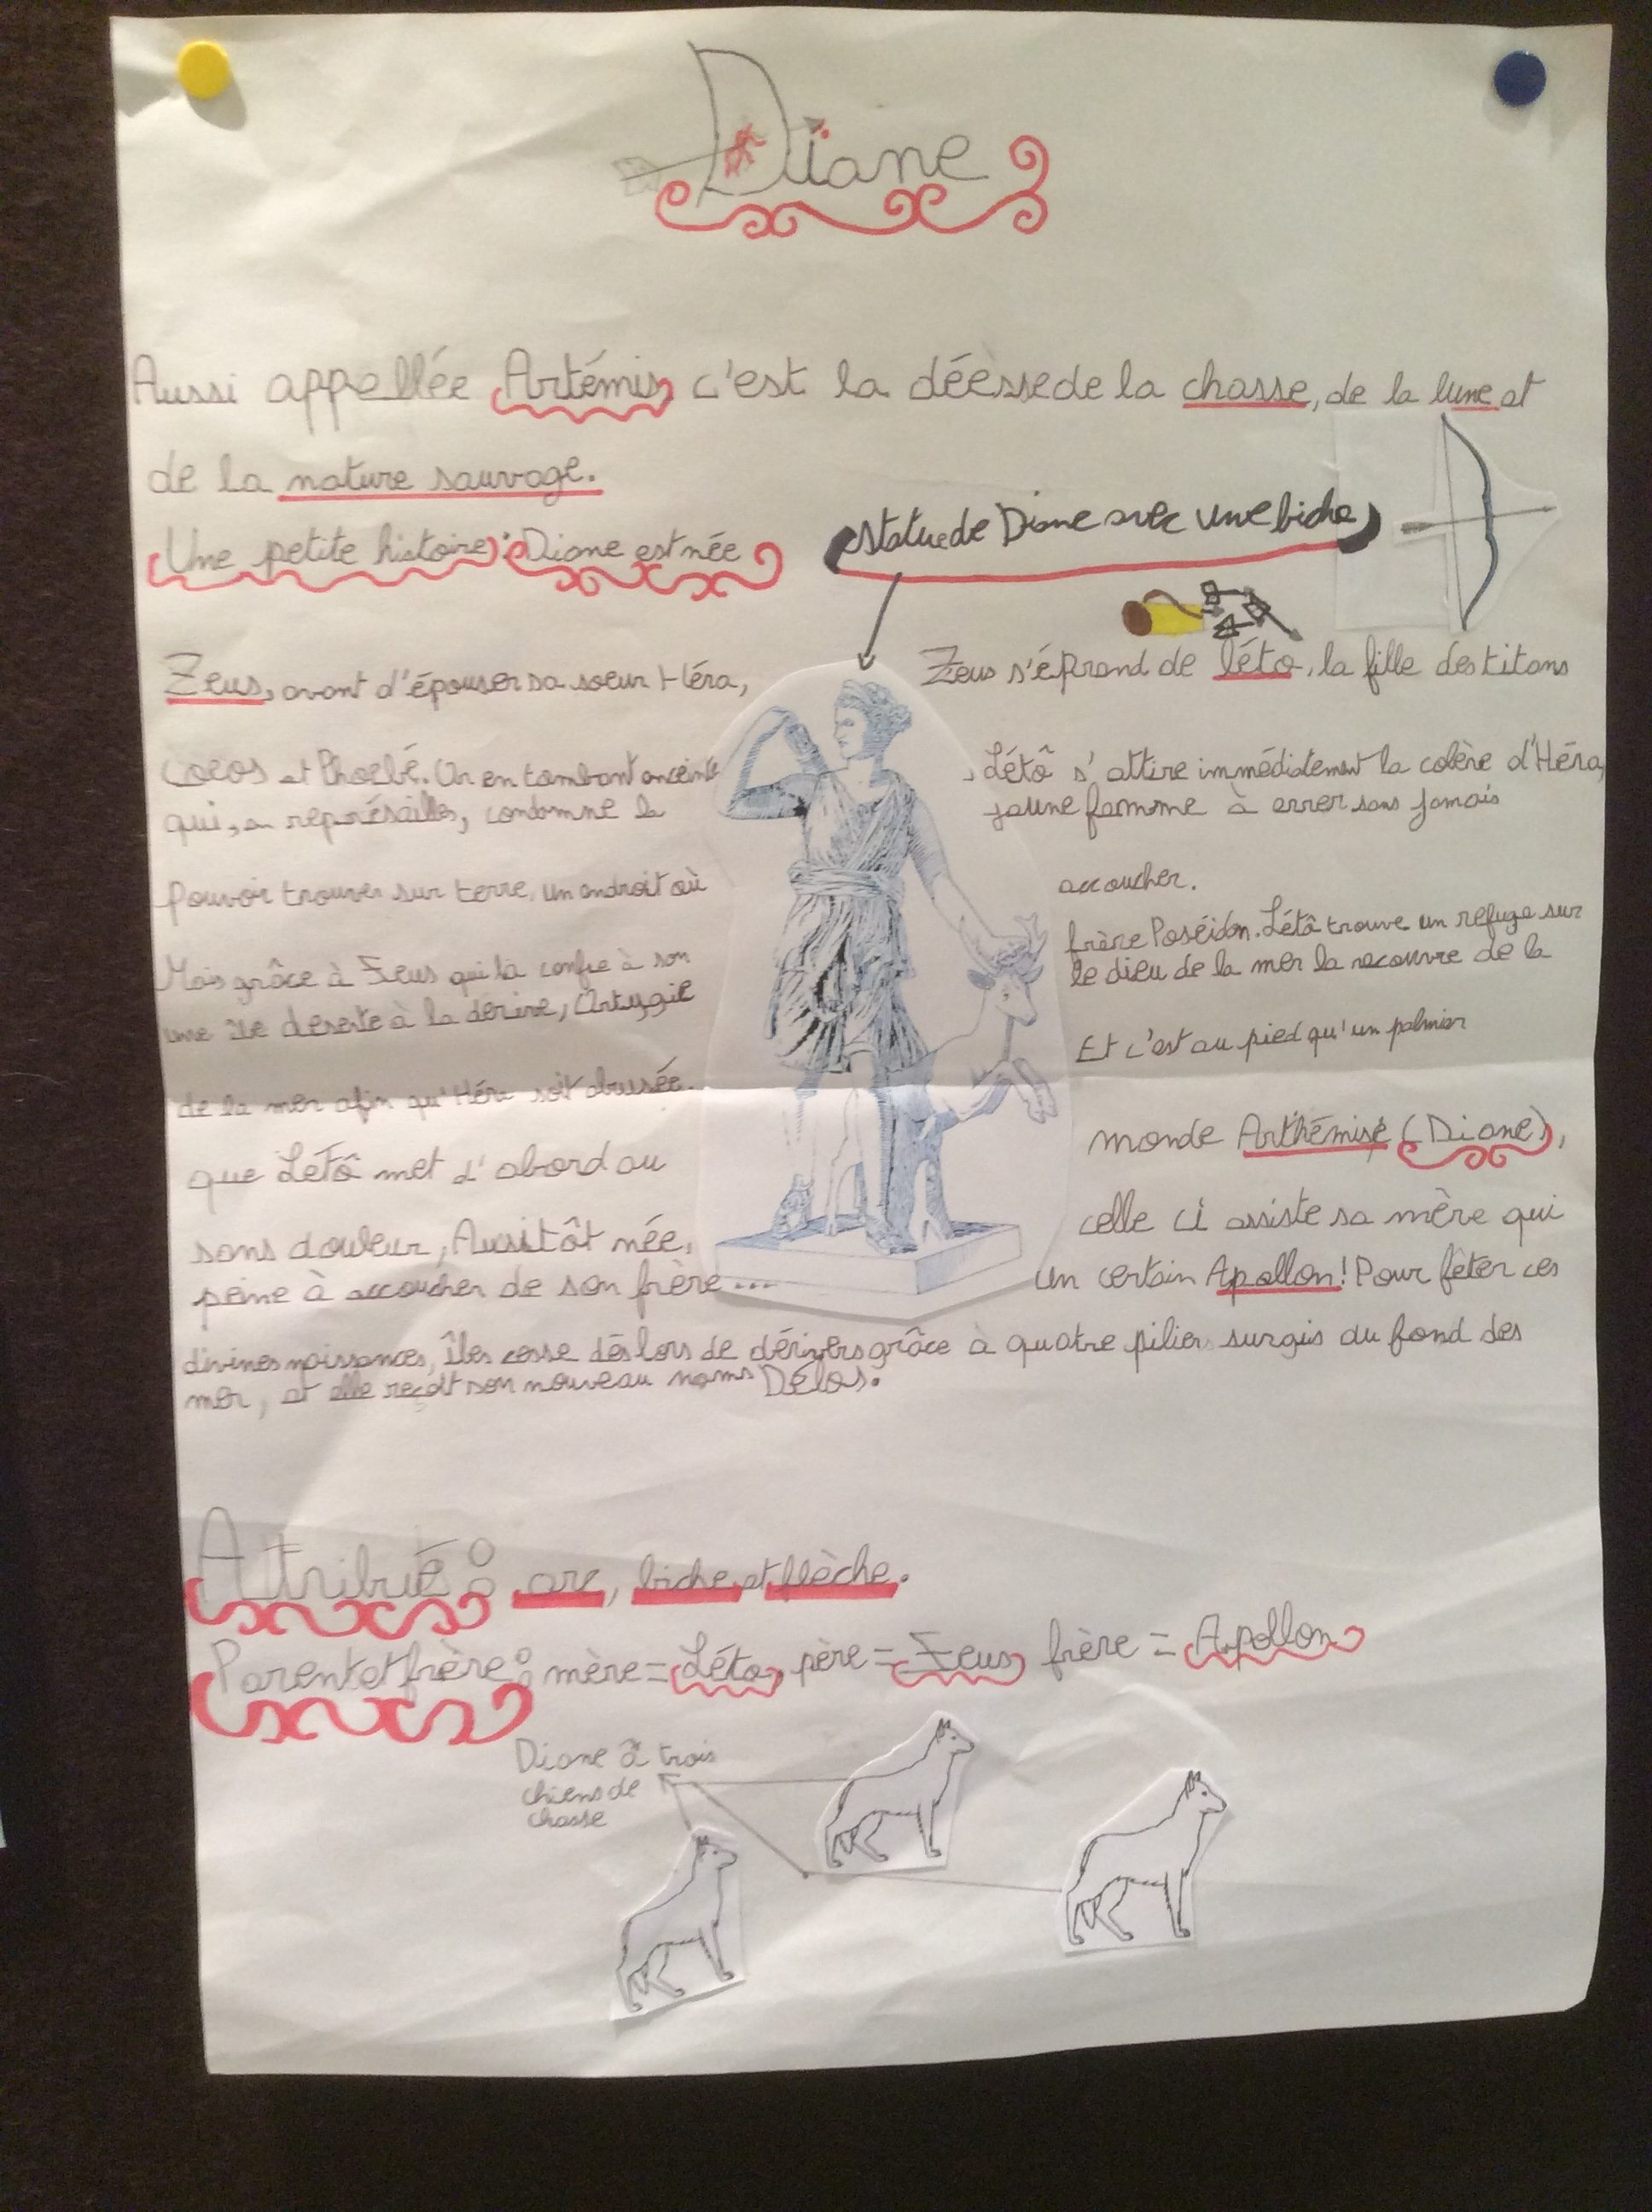 Diane
Aussi appellée Artémis, c'est la déèsse de la chasse, de la lune et
de la nature sauvage.
Statue de Diane avec une biche
Une petite histoire : Diane est née
Zeus, avant d'épouser sa soeur Héra, Zeus s'éprend de léto, la fille des titans
Coeos et Phoebé. Or en tombant enceinte, Létô s'attire immédiatement la colère d'Héra,
qui, en représailles, condamne la jeune femme à errer sans jamais
pouvoir trouver sur terre, un endroit où accoucher.
Mais grâce à Zeus qui la confie à son frère Poséidon. Létô trouve un refuge sur
une île deserte à la dérive, Ortygie le dieu de la mer la recouvre de la
de la mer afin qu'Héra soit abusée. Et c'est au pied qu'un palmier
que Létô met d'abord au monde Arthémise (Diane),
sans douleur, Ausitôt née, celle ci assiste sa mère qui
peine à accoucher de son frère... un certain Apollon! Pour fêter ces
divines naissances, îles cesse dès lors de dérivers grâce à quatre piliers surgis du fond des
mer, et elle reçoit son nouveau noms Délos.
Attribut : arc, biche et flèche.
Parent et frère : mère = Léto, père = Zeus frère = Apollon
Diane à trois
chiens de
chasse